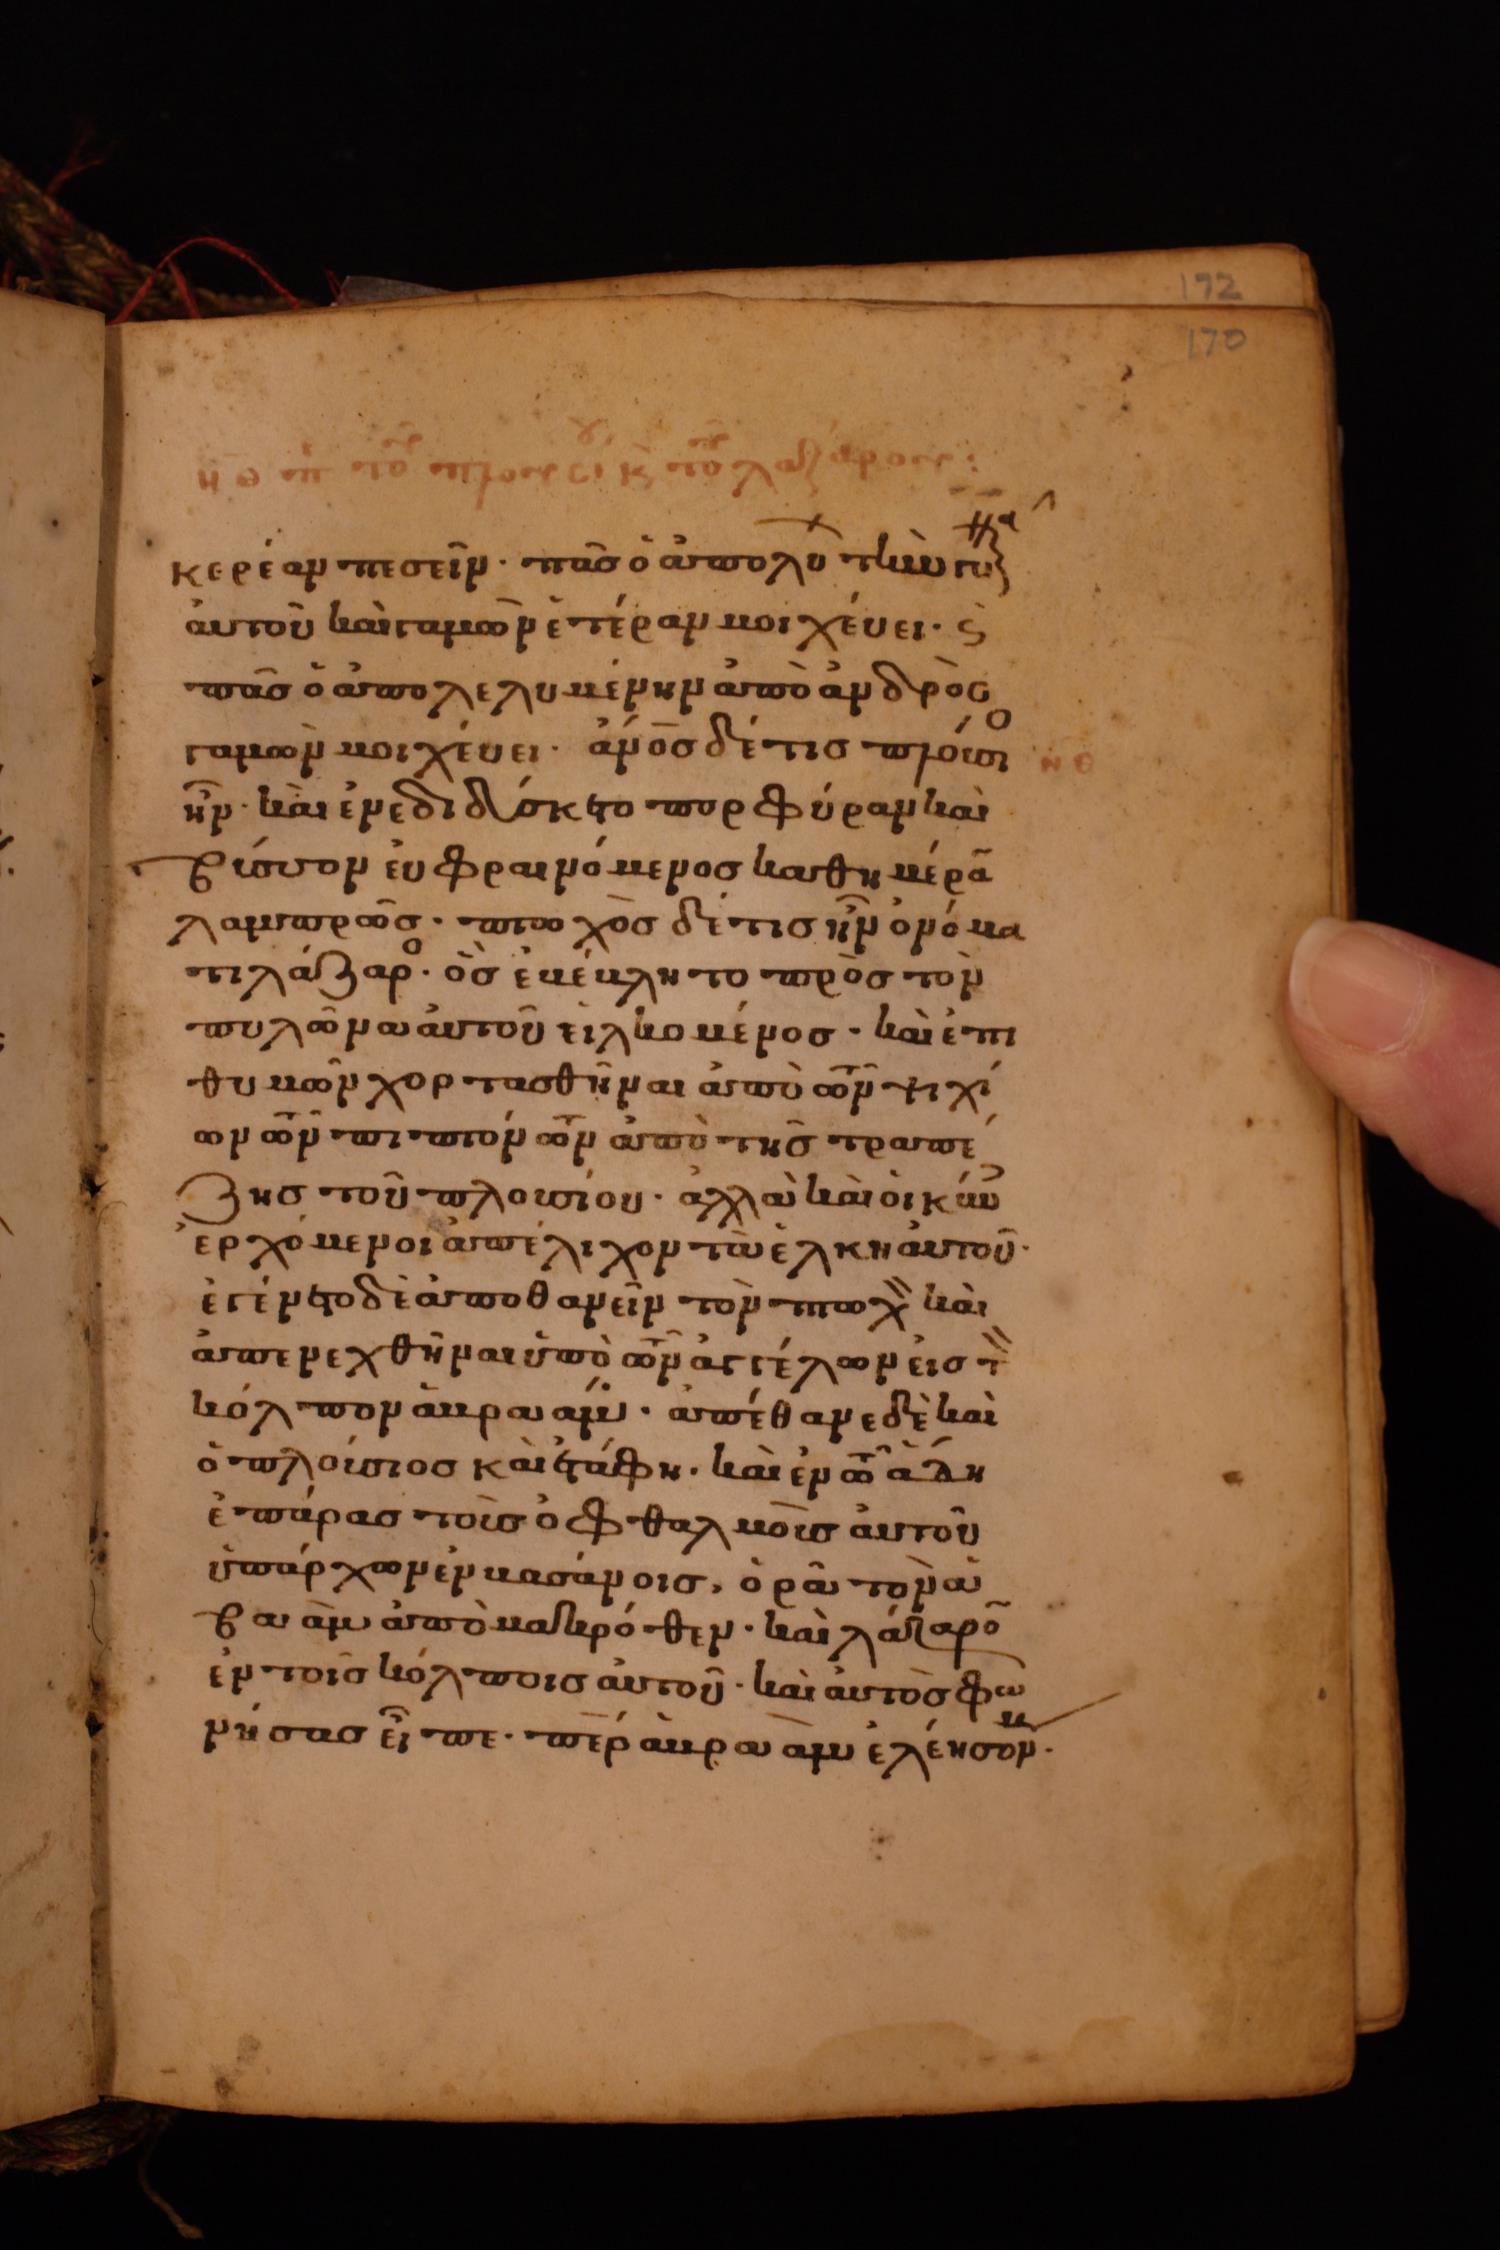 192
170
ν̅θ̅ πε τοῦ πλουσί κ τοῦ λαζάρου:
κερέαν πεσεῖν· πᾶσ ὁ ἀπολύ τὴν γυ
ἀυτοῦ καὶ γαμῶν ἑτέραν μοιχέυει· ϛ̀
πᾶσ ὁ ἀπολελυμένην ἀπὸ ἀνδρὸσ
γαμῶν μοιχέυει· ἀν̅ο̅σ δέ τισ πλόυσι
ν̅θ̅
ἦν· καὶ ἐνεδιδύσκετο πορφύραν καὶ
βύσσον ἐυφραινόμενοσ καθημέρα
λαμπρῶσ· πτωχὸσ δέ τισ ἦν ὀνόμα
τι λάζαρο· ὃσ ἐκέκλητο πρὸσ τὸν
πυλῶνα ἀυτοῦ εἱλκομένοσ· καὶ ἐπι
θυμῶν χορτασθῆναι ἀπὸ τῶν ψιχί
ων τῶν πιπτόντων ἀπὸ τῆσ τραπέ
ζησ τοῦ πλουσίου· ἀλλὰ καὶ ὁι κύν
ἐρχόμενοι ἀπέλιχον τὰ ἕλκη ἀυτοῦ·
ἐγένετο δὲ ἀποθανεῖν τὸν πτωχ̀ καὶ
ἀπενεχθῆναι ὑπὸ τῶν ἀγγέλων ἐισ τ̀
κόλπον ἀβρααμ· ἀπέθανε δὲ καὶ
ὁ πλούσιοσ καὶ ἐτάφη· καὶ ἐν τῶ ἅδη
ἐπάρασ τοὺσ ὀφθαλμοὺσ ἀυτοῦ
ὑπάρχων ἐν βασάνοισ, ὁρᾶ τὸν ἀ
βραὰμ ἀπὸ μακρόθεν· καὶ λάζαρο
ἐν τοῖσ κόλποισ ἀυτοῦ· καὶ ἀυτὸσ φω
νήσασ εἶπε· π̅ε̅ρ ἀβραὰμ ἐλέησον μ·